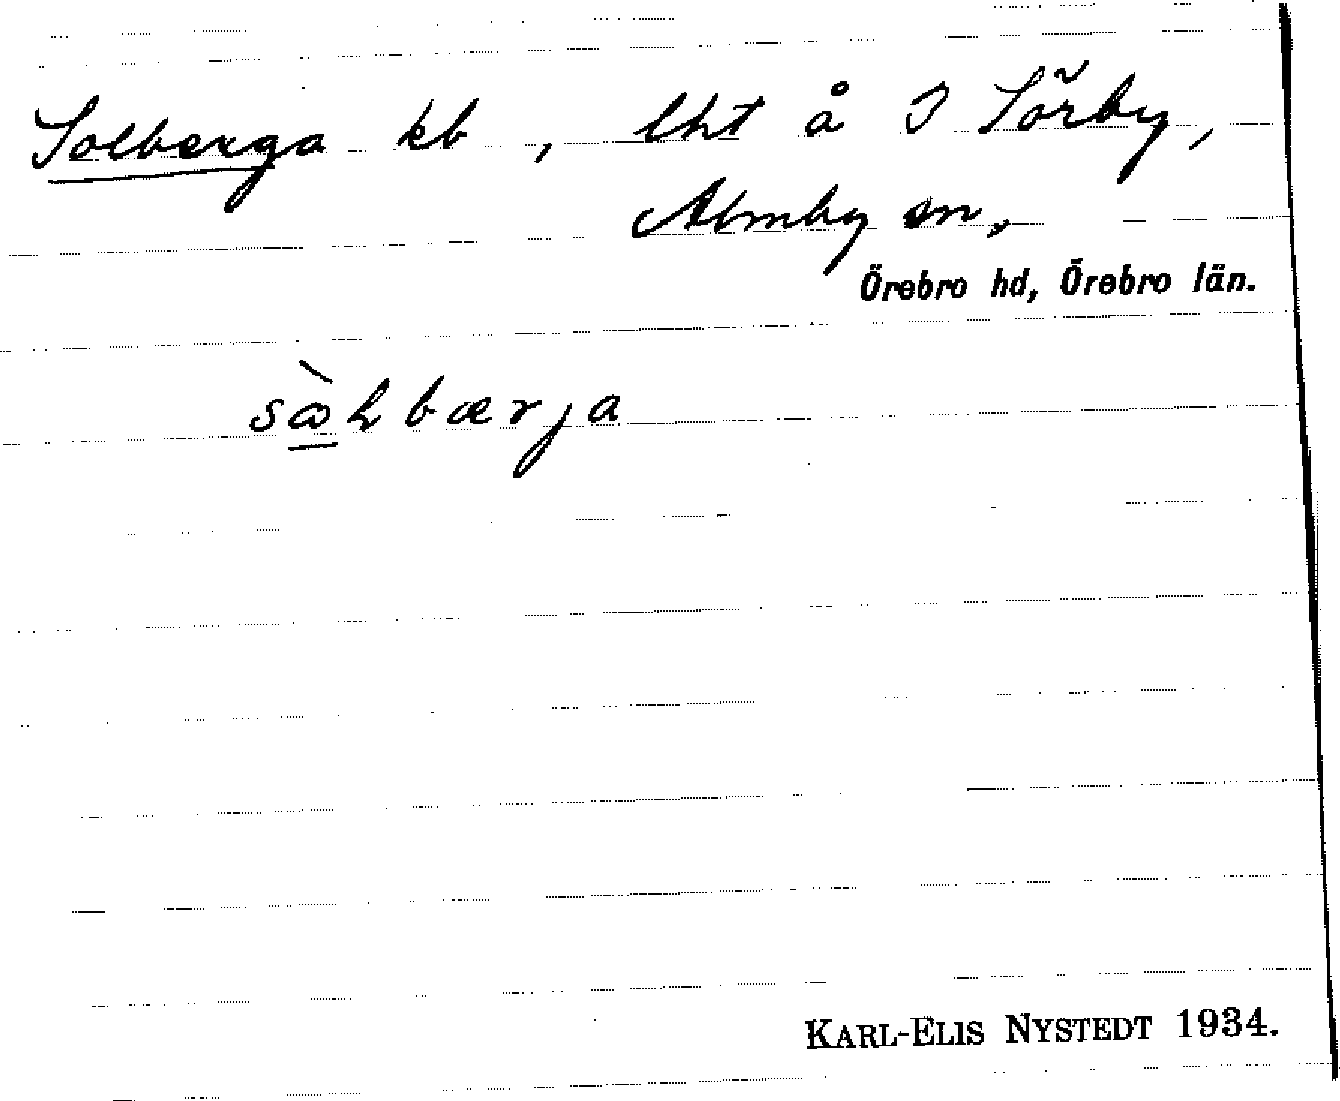 Solberga kb, lht å 3 Sörby,
Almby sn,
Örebro hd, Örebro län.
KARL-ELIS NYSTEDT 1934.